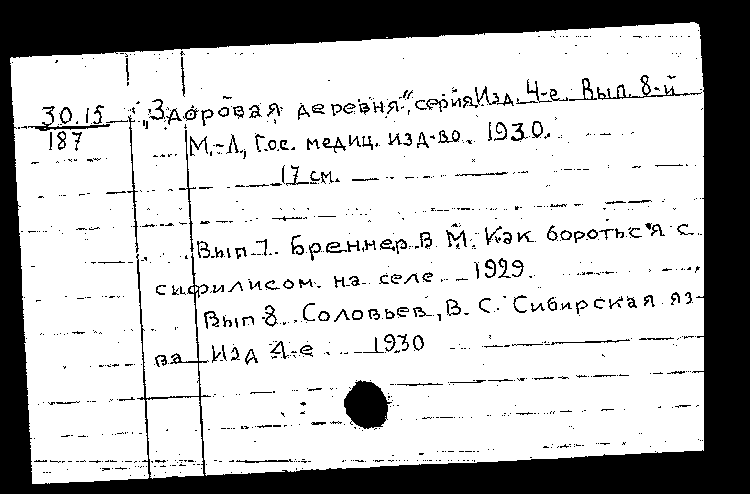 30.15
187
„Здоровая деревня“, серия Изд. 4-е. Вып. 8-й
М.-Л., Гос. медиц. изд-во. 1930.
17 см.
Вып 7. Бреннер В М. Как бороться с
сифилисом на селе. 1929.
Вып 8. Соловьев, В. С. Сибирская яз-
ва Изд 4-е 1930